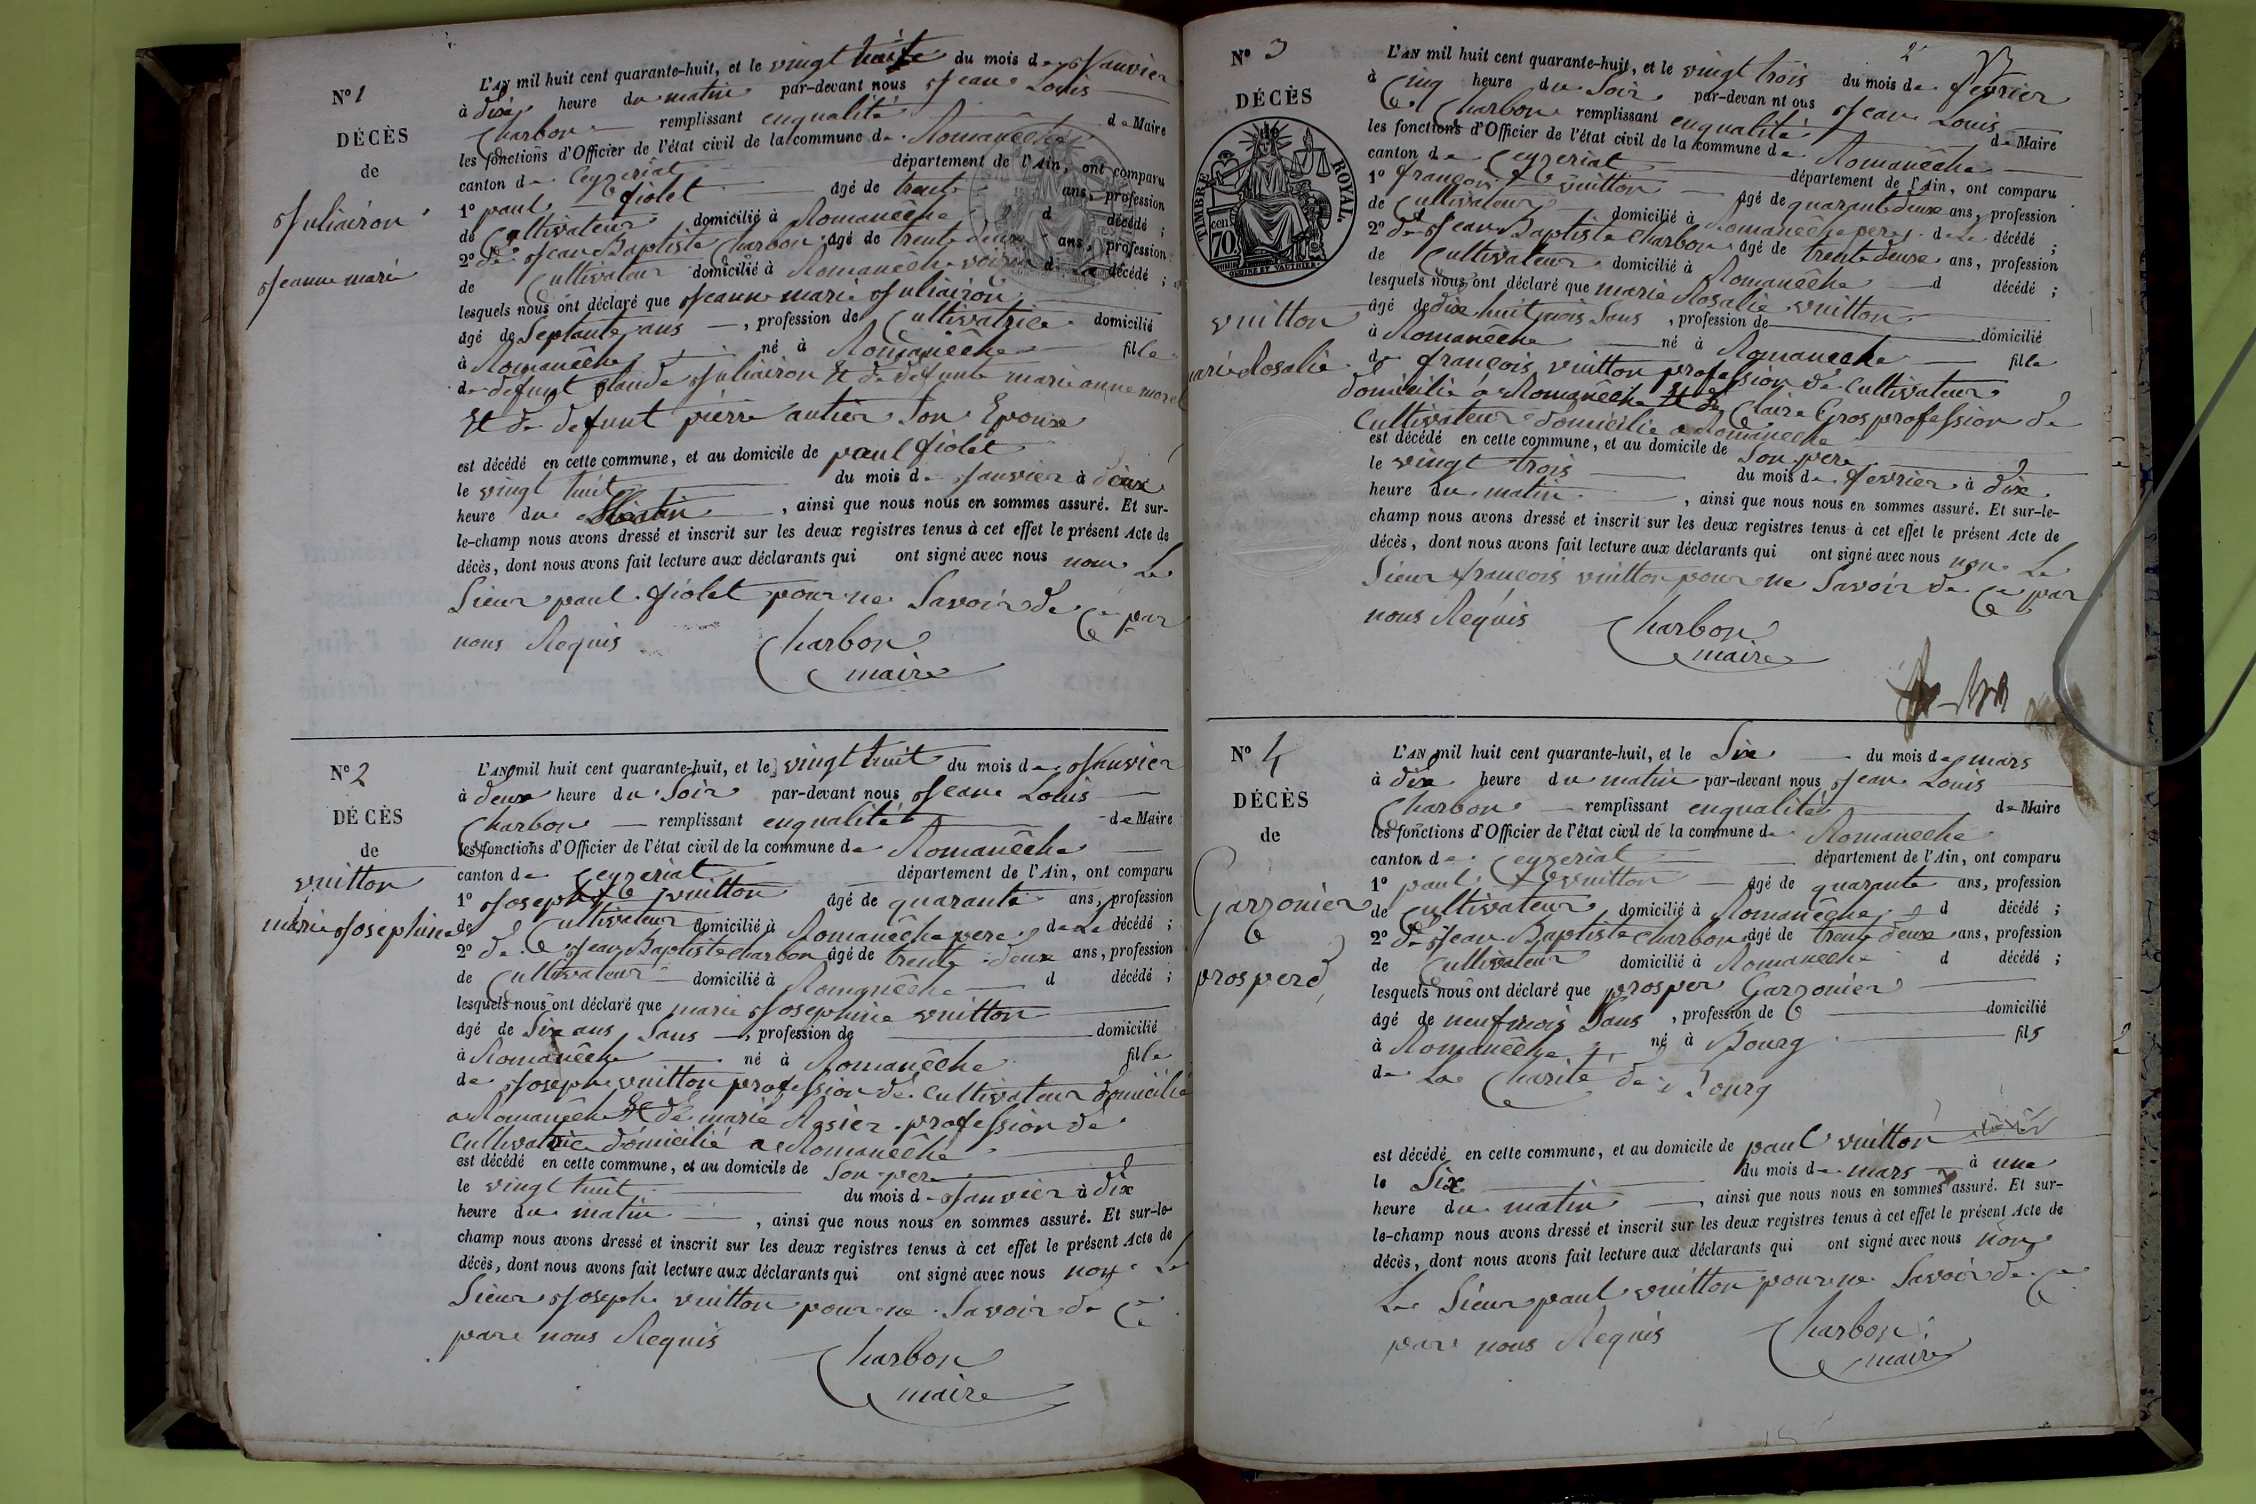 N° 1
DÉCÈS
de
Juliairon
Jeanne marie
L'AN mil huit cent quarante-huit, et le vingt huit du mois de Janvier
à dix heure du matin par-devant nous Jean Louis
Charbon remplissant enqualité de Maire
les fonctions d'Officier de l'état civil de la commune de Romanêche
canton de Ceyzeriat département de l'Ain, ont comparu
1° paul fiolet âgé de trente ans, profession
de Cultivateur domicilié à Romanêche d décédé ;
2° de Jean Baptiste Charbon âgé de trente deux ans, profession
de Cultivateur domicilié à Romanêche voisin de La décédé ;
lesquels nous ont déclaré que Jeanne marie Juliairon
âgé de Septante ans , profession de Cultivatrice domicilié
à Romanêche né à Romanêche fille
de defunt Claude Juliairon Et de defunte marie anne morel
Et de defunt pierre autier Son Epoux
est décédé en cette commune, et au domicile de paul fiolet
le vingt huit du mois de Janvier à deux
heure du Matin , ainsi que nous nous en sommes assuré. Et sur-
le-champ nous avons dressé et inscrit sur les deux registres tenus à cet effet le présent Acte de
décès, dont nous avons fait lecture aux déclarants qui ont signé avec nous non Le
Sieur paul fiolet pour ne Savoir de Ce par
nous Requis Charbon
maire
N° 2
DÉCÈS
de
vuitton
marie Josephine
L'AN mil huit cent quarante-huit, et le vingt huit du mois de Janvier
à deux heure du Soir par-devant nous Jean Louis
Charbon remplissant enqualité de Maire
les fonctions d'Officier de l'état civil de la commune de Romanêche
canton de Ceyzeriat département de l'Ain, ont comparu
1° Joseph vuitton âgé de quarante ans, profession
de Cultivateur domicilié à Romanêche pere de La décédé ;
2° de Jean Baptiste Charbon âgé de trente deux ans, profession
de Cultivateur domicilié à Romanêche d décédé ;
lesquels nous ont déclaré que marie Josephine vuitton
âgé de Six ans Sans , profession de domicilié
à Romanêche né à Romanêche fille
de Joseph vuitton profession de Cultivateur domicilié
a Romanêche Et de marie Rosier profession de
Cultivatrice domicilié a Romanêche
est décédé en cette commune, et au domicile de Son pere
le vingt huit du mois de Janvier à dix
heure du matin , ainsi que nous nous en sommes assuré. Et sur-le-
champ nous avons dressé et inscrit sur les deux registres tenus à cet effet le présent Acte de
décès, dont nous avons fait lecture aux déclarants qui ont signé avec nous non Le
Sieur Joseph vuitton pour ne Savoir de Ce
pare nous Requis
Charbon
maire
N° 3
DÉCÈS
TIMBRE ROYAL
70 cent
vuitton
marie Rosalie
2
L'AN mil huit cent quarante-huit, et le vingt trois du mois de fevrier
à Cinq heure du Soir par-devan nt ous Jean Louis
Charbon remplissant enqualité de Maire
les fonctions d'Officier de l'état civil de la commune de Romanêche
canton de Ceyzeriat département de l'Ain, ont comparu
1° françois vuitton âgé de quarante deux ans, profession
de Cultivateur domicilié à Romanêche pere de La décédé ;
2° de Jean Baptiste Charbon âgé de trente deux ans, profession
de Cultivateur domicilié à Romanêche d décédé ;
lesquels nous ont déclaré que marie Rosalie vuitton
âgé de dix huit mois Sans , profession de domicilié
à Romanêche né à Romanêche fille
de françois vuitton profession de Cultivateur
domicilié a Romanêche Et de Claire Gros profession de
Cultivateur domicilié a Romanêche
est décédé en cette commune, et au domicile de Son pere
le vingt trois du mois de fevrier à dix
heure du matin , ainsi que nous nous en sommes assuré. Et sur-le-
champ nous avons dressé et inscrit sur les deux registres tenus à cet effet le présent Acte de
décès, dont nous avons fait lecture aux déclarants qui ont signé avec nous non Le
Sieur françois vuitton pour ne Savoir de Ce par
nous Requis Charbon
maire
N° 4
DÉCÈS
de
Garzonier
prosper
L'AN mil huit cent quarante-huit, et le Six du mois de mars
à dix heure du matin par-devant nous Jean Louis
Charbon remplissant enqualité de Maire
les fonctions d'Officier de l'état civil de la commune de Romanêche
canton de Ceyzeriat département de l'Ain, ont comparu
1° paul vuitton âgé de quarante ans, profession
de Cultivateur domicilié à Romanêche d décédé ;
2° de Jean Baptiste Charbon âgé de trente deux ans, profession
de Cultivateur domicilié à Romanêche d décédé ;
lesquels nous ont déclaré que prosper Garzonier
âgé de neuf mois Sans , profession de domicilié
à Romanêche né à Bourg fils
de La Charité de Bourg
est décédé en cette commune, et au domicile de paul vuitton
le Six du mois de mars à une
heure du matin , ainsi que nous nous en sommes assuré. Et sur-
le-champ nous avons dressé et inscrit sur les deux registres tenus à cet effet le présent Acte de
décès, dont nous avons fait lecture aux déclarants qui ont signé avec nous non
Le Sieur paul vuitton pour ne Savoir de Ce
pare nous Requis Charbon
maire